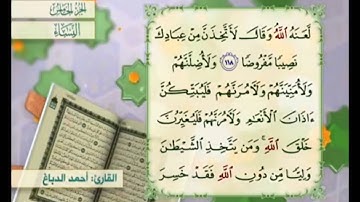 الجزء الخامس
النساء
لَّعَنَهُ ٱللَّهُ وَقَالَ لَأَتَّخِذَنَّ مِنْ عِبَادِكَ
نَصِيبًا مَّفْرُوضًا ١١٨ وَلَأُضِلَّنَّهُمْ
وَلَأُمَنِّيَنَّهُمْ وَلَءَامُرَنَّهُمْ فَلَيُبَتِّكُنَّ
ءَاذَانَ ٱلْأَنْعَٰمِ وَلَءَامُرَنَّهُمْ فَلَيُغَيِّرُنَّ
خَلْقَ ٱللَّهِ ۚ وَمَن يَتَّخِذِ ٱلشَّيْطَٰنَ
وَلِيًّا مِّن دُونِ ٱللَّهِ فَقَدْ خَسِرَ
القارئ: أحمد الدباغ